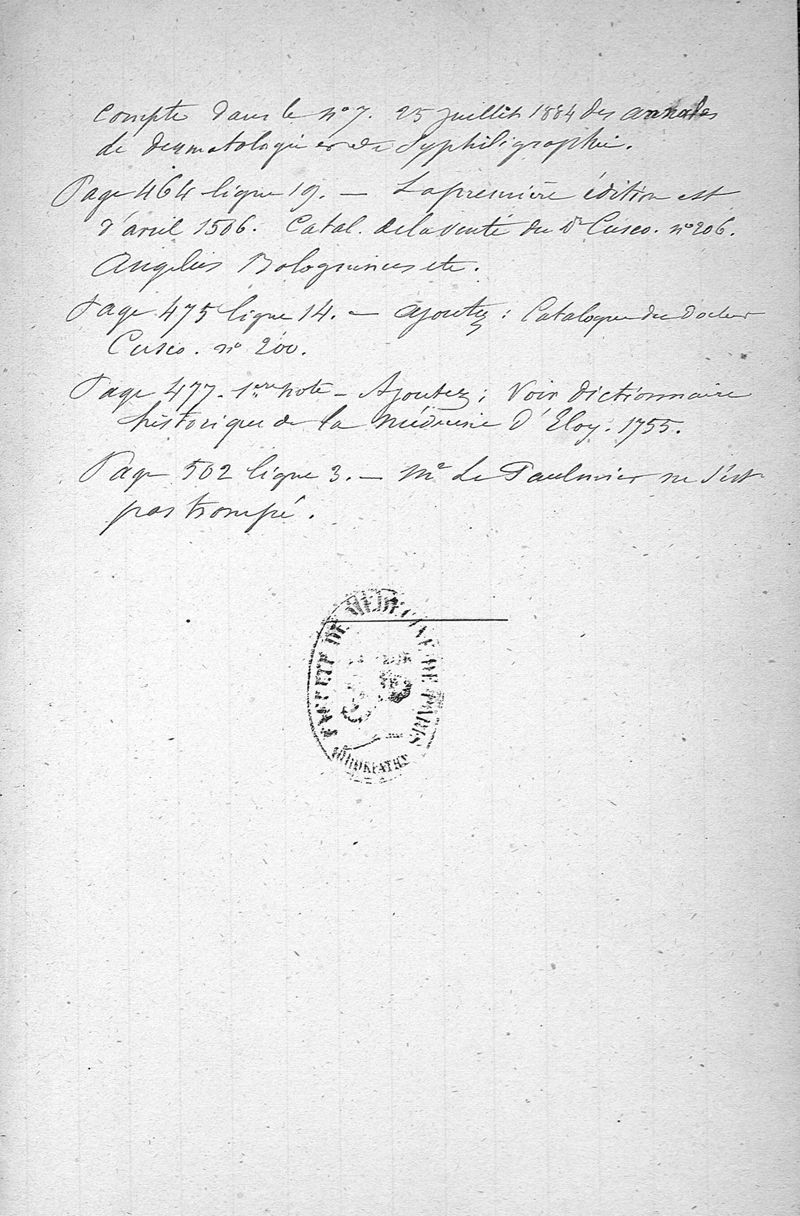 compte dans le n° 7. 25 juillet 1884 des annales
de dermatologie et de Syphiligraphie.
Page 464 ligne 19. — La première édition est
d'avril 1506. Catal. de la vente du Dr Cusco. n° 206.
Angelus Bologninus etc.
Page 475 ligne 14. — ajoutez : Catalogue du Docteur
Cusco. n° 200.
Page 477. 1ere note — Ajoutez ; Voir dictionnaire
historique de la Médecine d'Eloy. 1755.
Page 502 ligne 3. — Mr Le Paulmier ne s'est
pas trompé.
FACULTÉ DE MÉDECINE DE PARIS